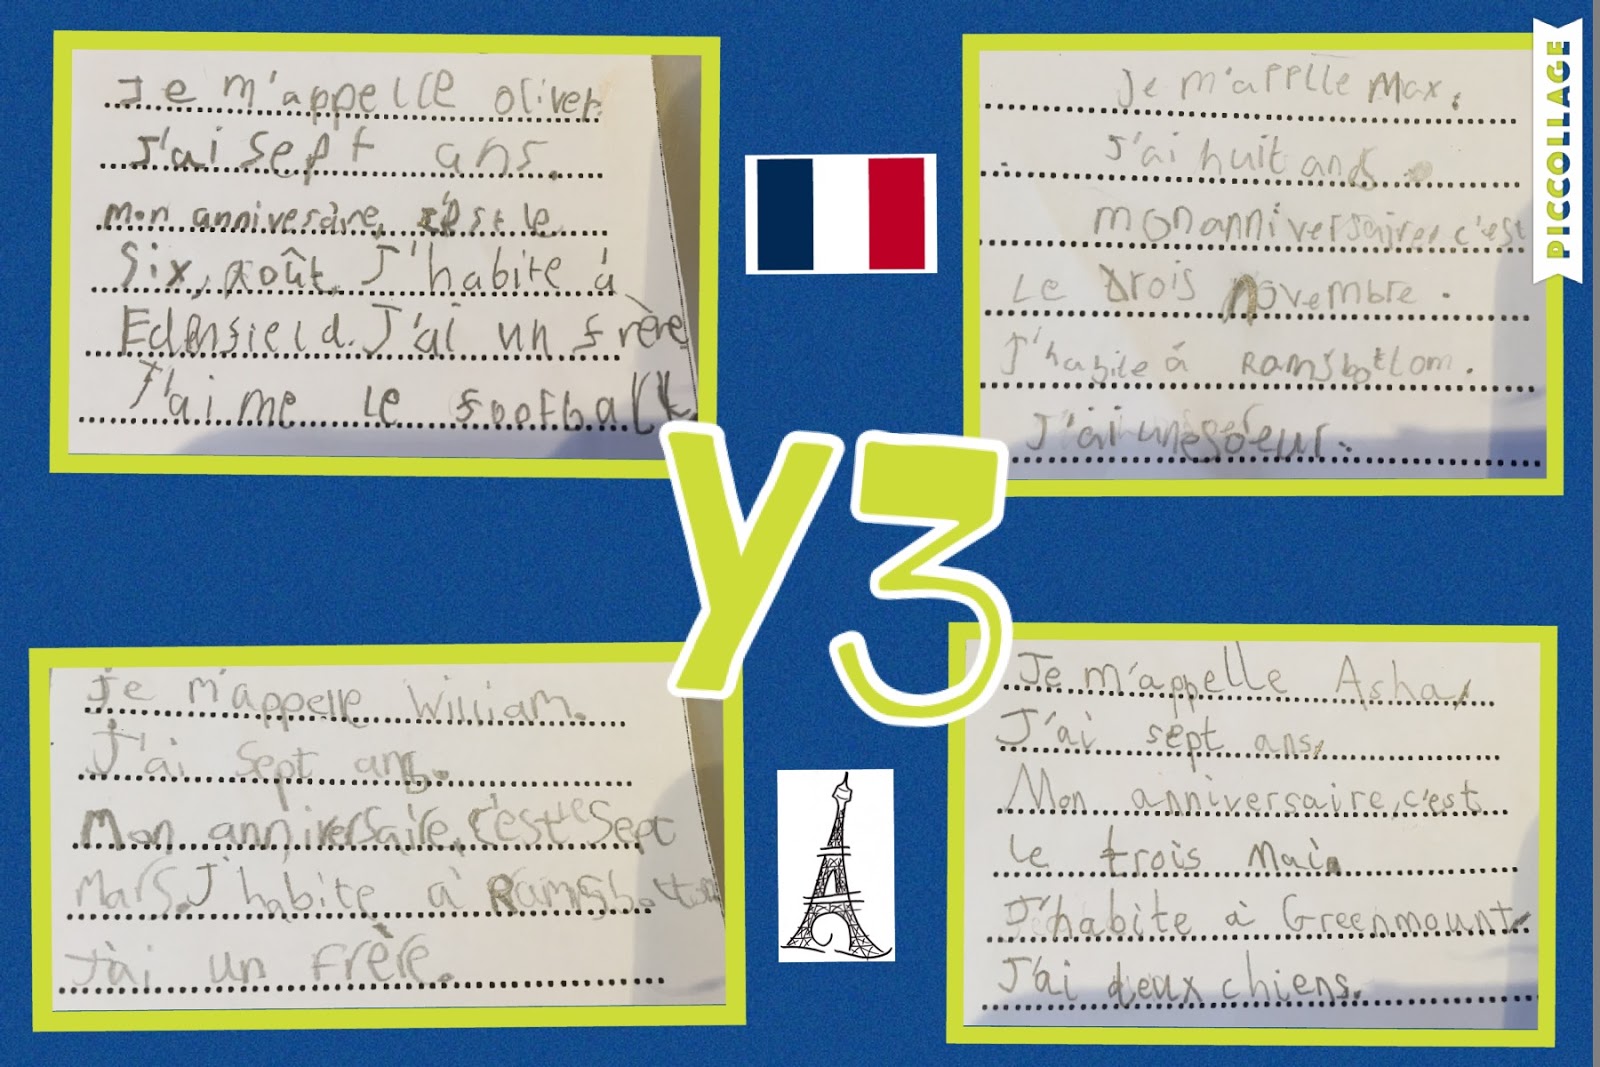 Je m'appelle oliver.
J'ai sept ans.
mon anniversaire, c'est le
Six, août. J'habite à
Edenfield. J'ai un frère
J'aime le football
Je m'applle Max.
J'ai huit ans.
mon anniversaire, c'est
Le trois novembre.
J'habite à Ramsbottom.
J'ai une soeur.
Y3
Je m'appelle William.
J'ai Sept ans.
Mon anniversaire, c'est le Sept
Mars. J'habite à Ramsbottom
J'ai un frère.
Je m'appelle Asha.
J'ai sept ans.
Mon anniversaire, c'est
le trois Mai.
J'habite à Greenmount.
J'ai deux chiens.
PICCOLLAGE